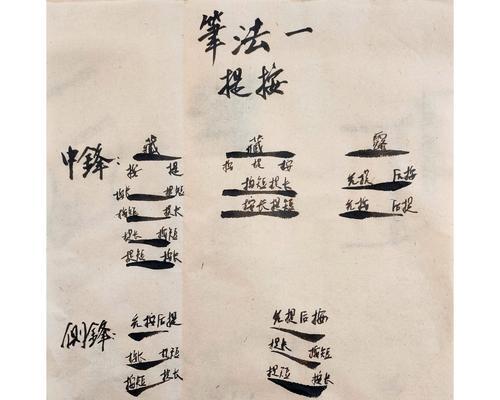 筆法一
提按
中鋒： 藏 藏 露
按 提 按 提 按
按长 提短 按短提长 先提 后按
按短 提长 按长提短 先按 后提
提长 按短
提短 按长
侧鋒： 先按后提 先提后按
按长 提短 提长 按短
按短 提长 提短 按长